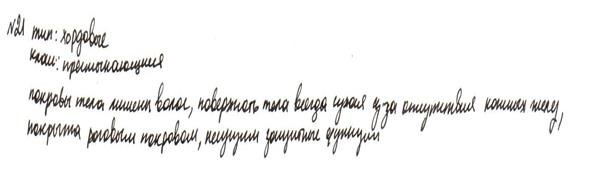 №21 тип: хордовые
класс: пресмыкающиеся
покровы тела лишены волос, поверхность тела всегда сухая из за отсутствия кожных желез,
покрыта роговым покровом, несущим защитные функции